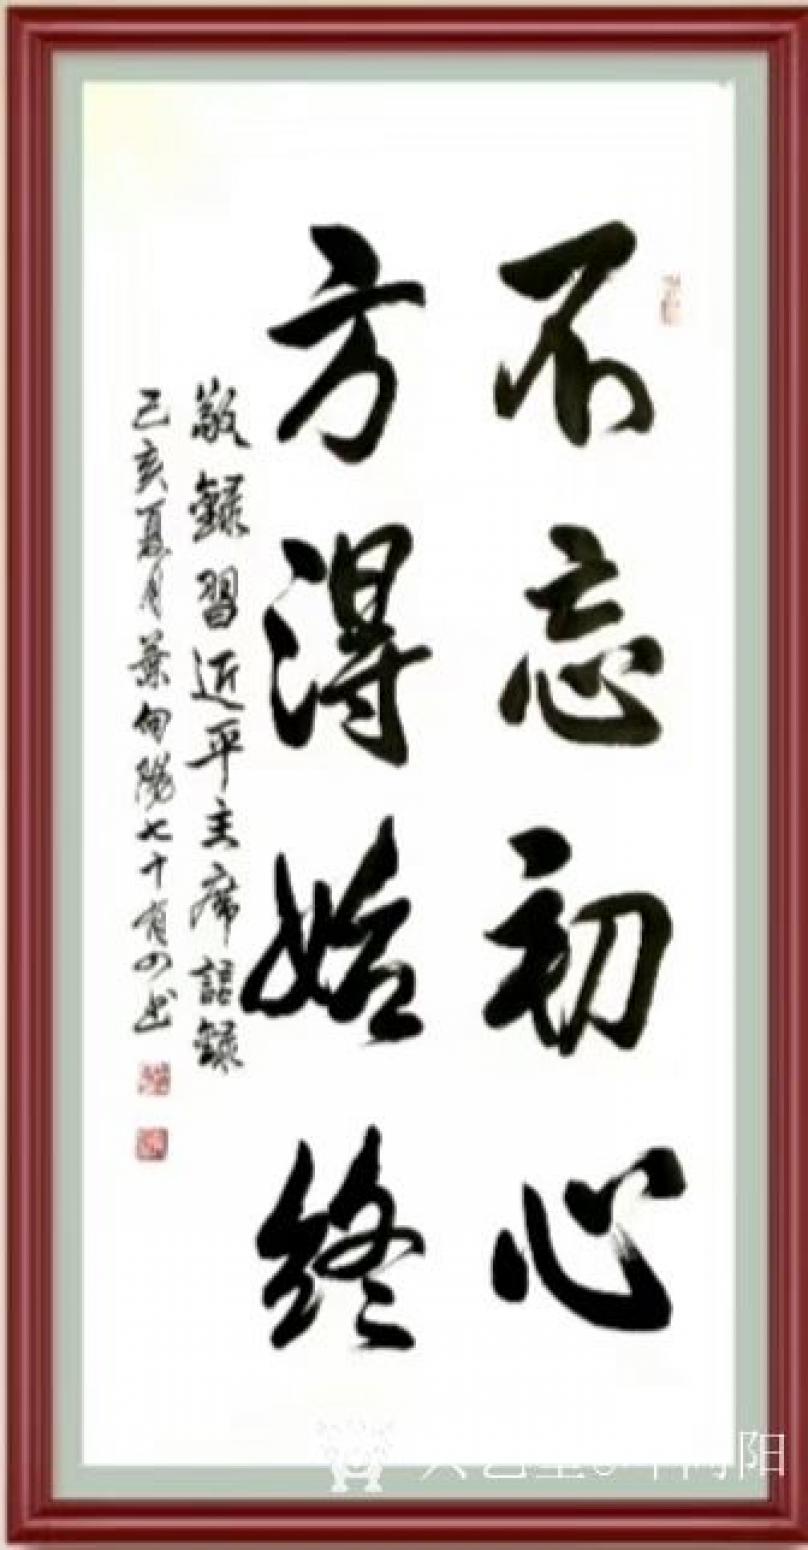 不忘初心
方得始终
敬録習近平主席語録
己亥夏月葉向陽七十有四书
阳